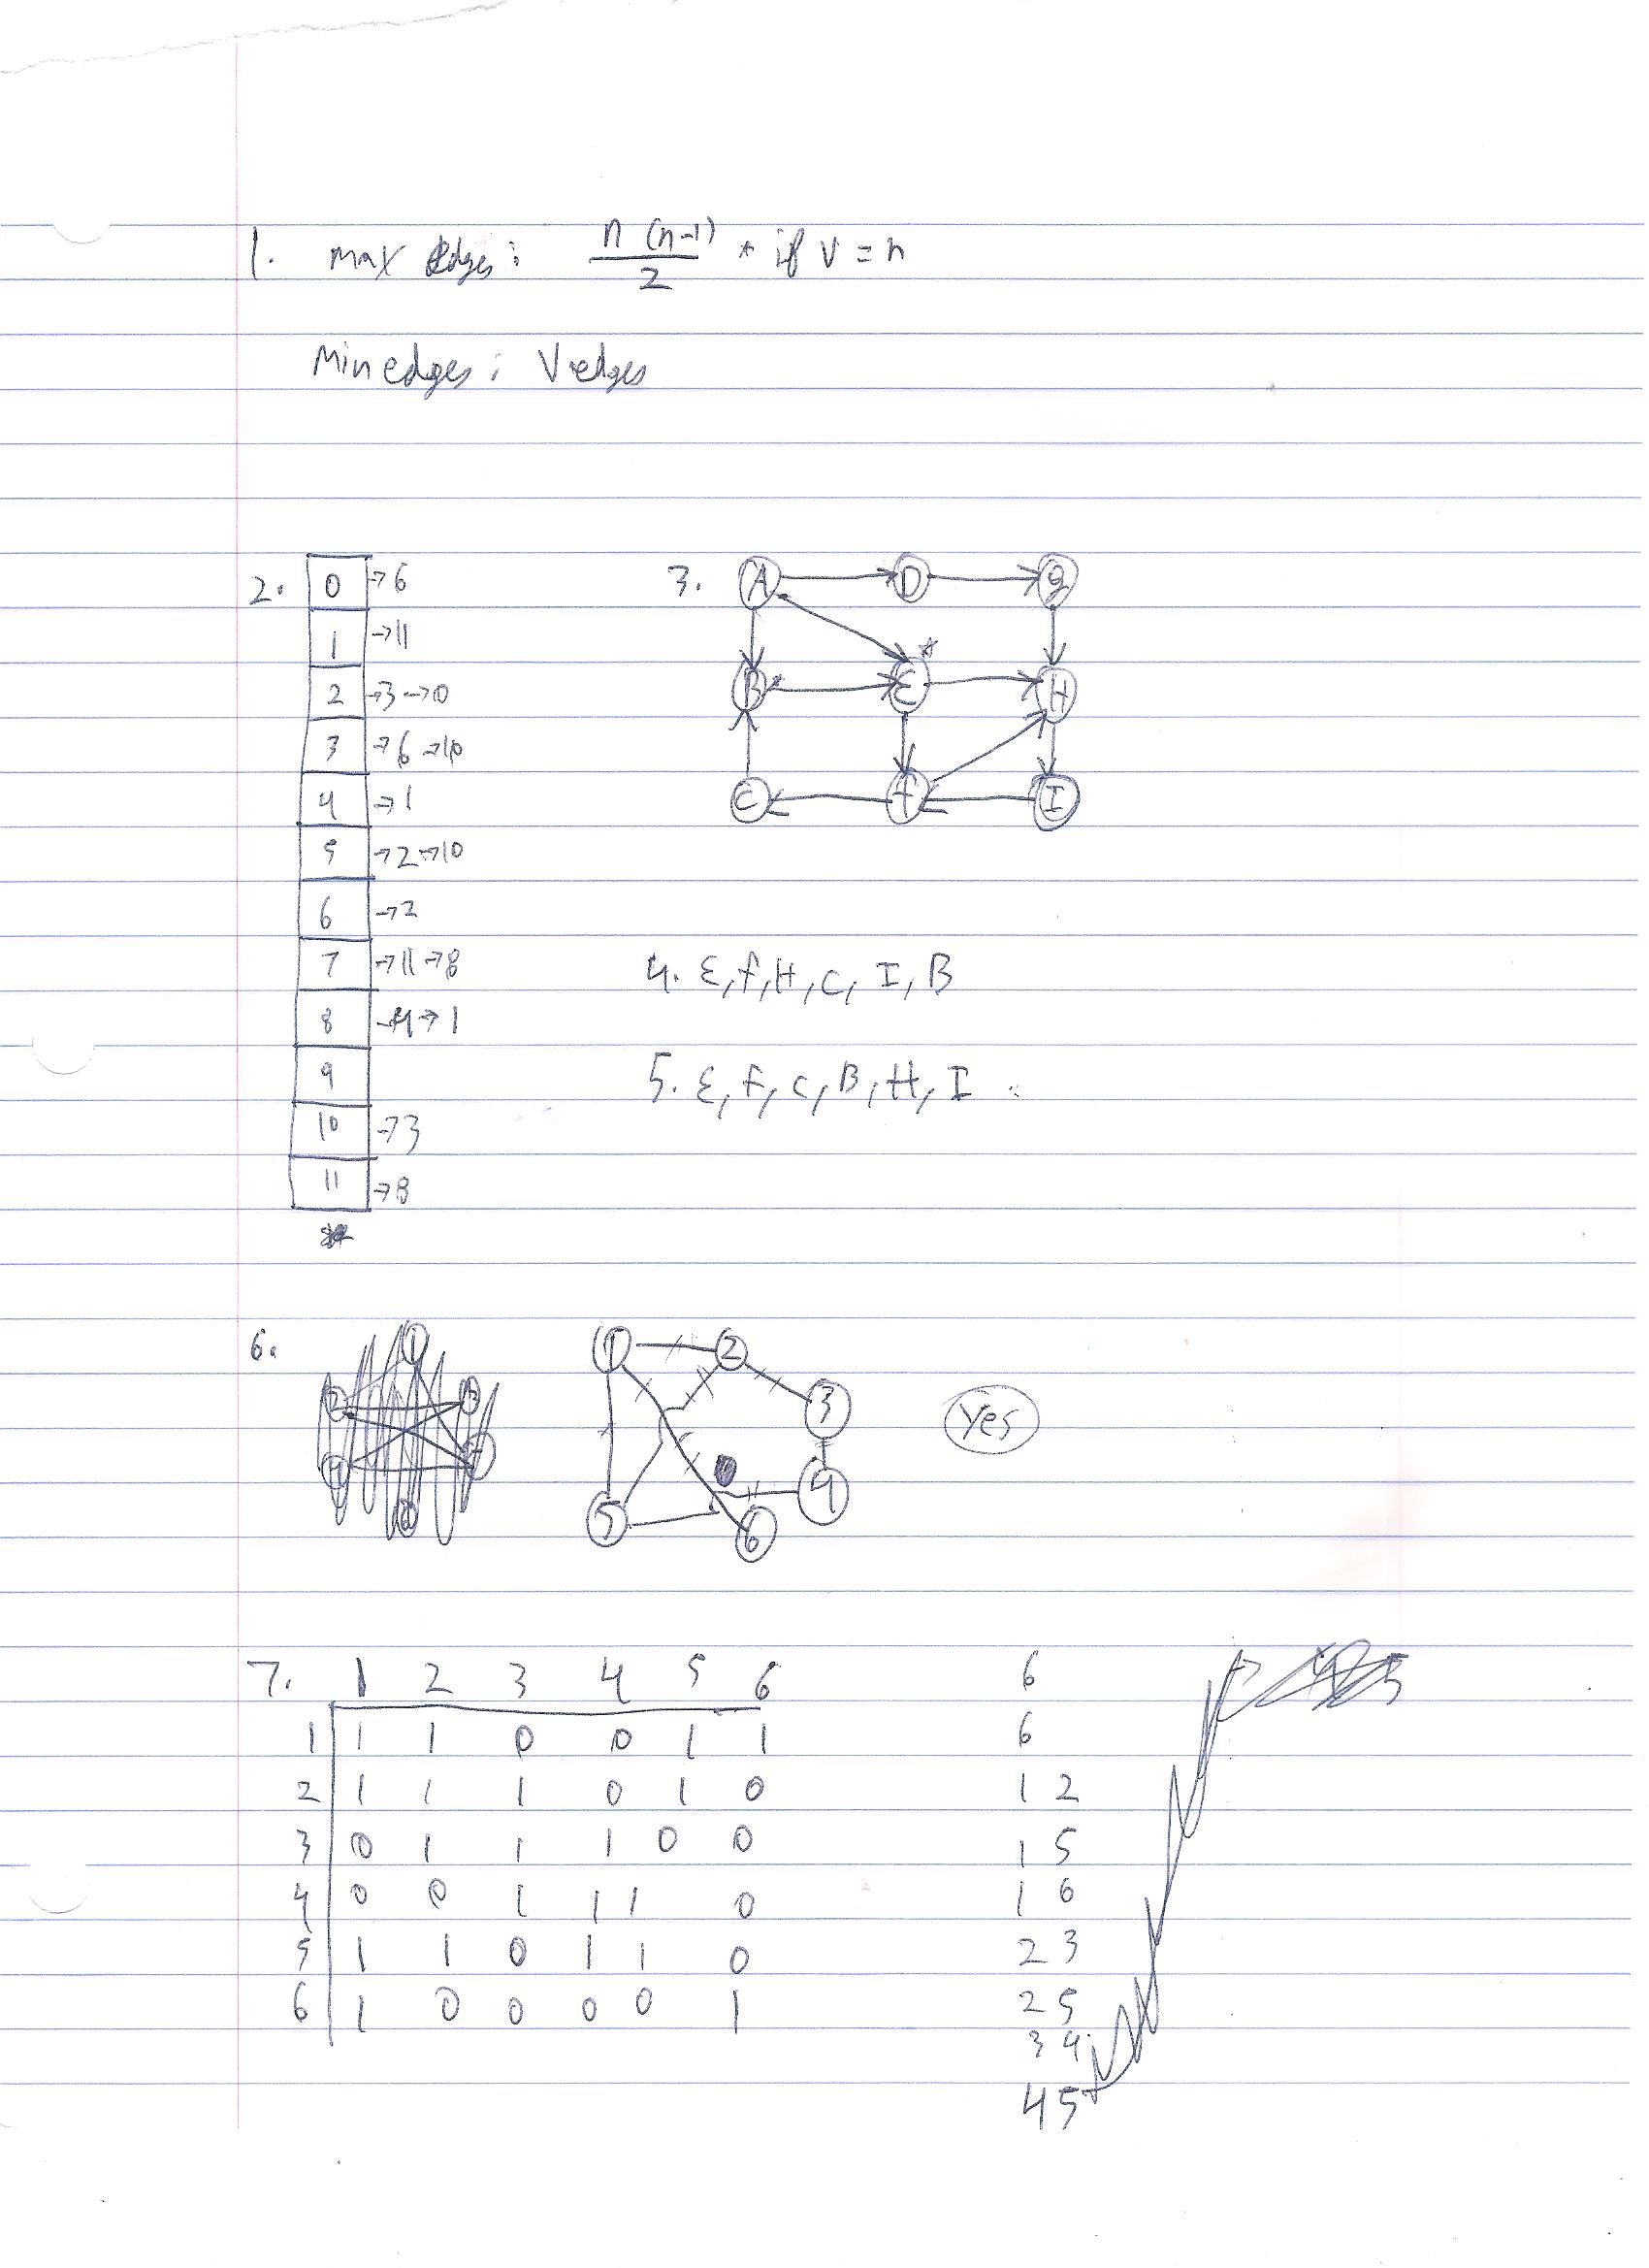 1. max edges: n (n-1) / 2 * if v = n
Min edges: V edges
2. 0 →6
1 →11
2 →3 →0
3 →6 →10
4 →1
5 →2 →10
6 →2
7 →11 →8
8 →4 →1
9
10 →3
11 →8
3. A D g
B E * H
C f I
4. E, f, H, C, I, B
5. E, F, C, B, H, I
6. 1 2 3 4 5 6 Yes
7. 1 2 3 4 5 6
1 1 1 0 0 1 1
2 1 1 1 0 1 0
3 0 1 1 1 0 0
4 0 0 1 1 1 0
5 1 1 0 1 1 0
6 1 0 0 0 0 1
6
6
1 2
1 5
1 6
2 3
2 5
3 4
4 5